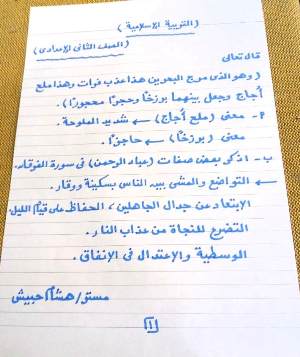 (التربية الإسلامية)
(الصف الثانى الإعدادى)
قال تعالى
(وهو الذى مرج البحرين هذا عذب فرات وهذا ملح
أجاج وجعل بينهما برزخًا وحجرًا محجورًا).
م- معنى (ملح أجاج) ← شديد الملوحة.
معنى (برزخًا) ← حاجزًا.
ب- اذكر بعض صفات (عباد الرحمن) فى سورة الفرقان.
← التواضع والمشى بين الناس بسكينة ووقار.
الابتعاد عن جدال الجاهلين، الحفاظ على قيام الليل.
التضرع للنجاة من عذاب النار.
الوسطية والإعتدال فى الإنفاق.
مستر/ هشام حبيش
١